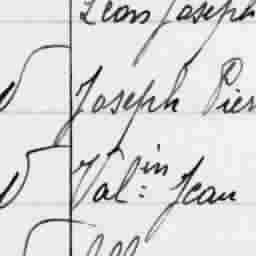 Léon Joseph
Joseph Pier
Val:in Jean